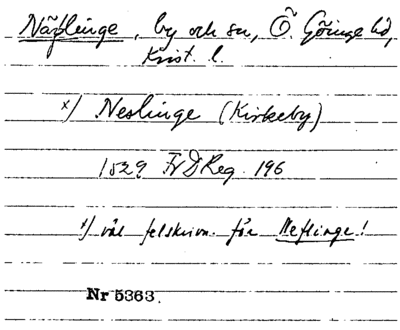 Näflinge, by och sn, Ö. Göinge hd,
Krist. l.
x) Neslinge (Kirkeby)
1529 Fr D Reg. 196
x) väl felskrivn. för Neflinge!
Nr 5363.